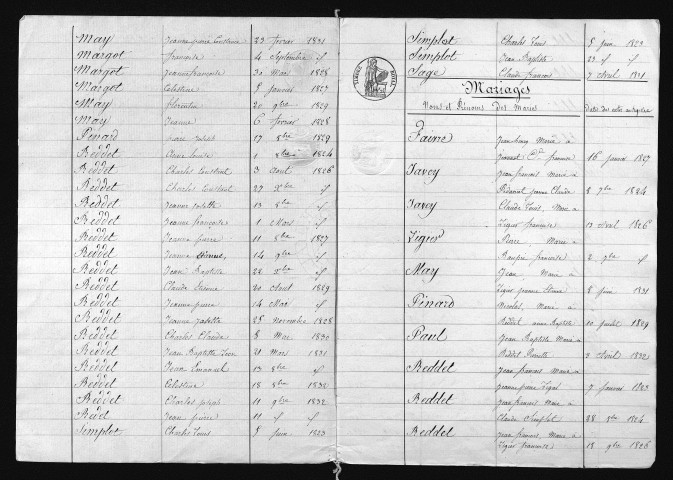 May Jeanne pierre Constance 23 fevrier 1831
Margot françoise 4 Septembre if
Margot Jeanne françoise 30 Mai 1828
Margot Celestine 8 janvier 1827
May florentin 20 9bre 1829
May Jeanne 6 fevrier 1828
Pénard pierre joseph 17 8bre 1829
Reddet Anne Louise 1 8bre 1824
Reddet Charles Constant 3 Aout 1826
Reddet Charles Constant 27 Xbre if
Reddet Jeanne judette 13 8bre if
Reddet Jeanne françoise 1 Mars if
Reddet Jeanne pierre 11 8bre 1827
Reddet Jeanne 14 9bre if
Reddet Jean Baptiste 22 Xbre if
Reddet Claude Etienne 20 Aout 1829
Reddet Jeanne pierre 24 Mai if
Reddet Jeanne judette 25 Novembre 1828
Reddet Charles Claude 8 Mai 1830
Reddet Jean Baptiste Leon 21 Mars 1831
Reddet Jean Emanuel 13 8bre if
Reddet Celestine 18 8bre 1832
Reddet Charles joseph 11 9bre 1832
Redet Jean pierre 11 if if
Simplot Charles Louis 8 juin 1823
Simplot Charles Louis 8 juin 1823
Simplot Jean Baptiste 23 if if
Sage Claude françois 7 Avril 1831
TIMBRE ROYAL
Mariages
Noms et Prénoms Des Mariés Date des actes
Faivre Marié à
françoise 16 janvier 1827
Javey Jean françois Marié à
jeanne Claude 8 7bre 1824
Javey Claude Louis, Marié à
Ligier françoise 13 Avril 1826
Ligier Pierre, Marié à
françoise 2 9bre if
May Jean, Marié à
Ligier jeanne 8 juin 1831
Pénard Nicolas, Marié à
Reddet anne Baptiste 10 juillet 1829
Paul Jean Baptiste Marié à
Reddet 3 Avril 1832
Reddet Jean françois Marié à
jeanne pierre Ligier 7 janvier 1823
Reddet Jean françois Marié à
Claudine Simplot 28 8bre 1824
Reddet Jean françois, Marié à
Ligier françoise 18 9bre 1826